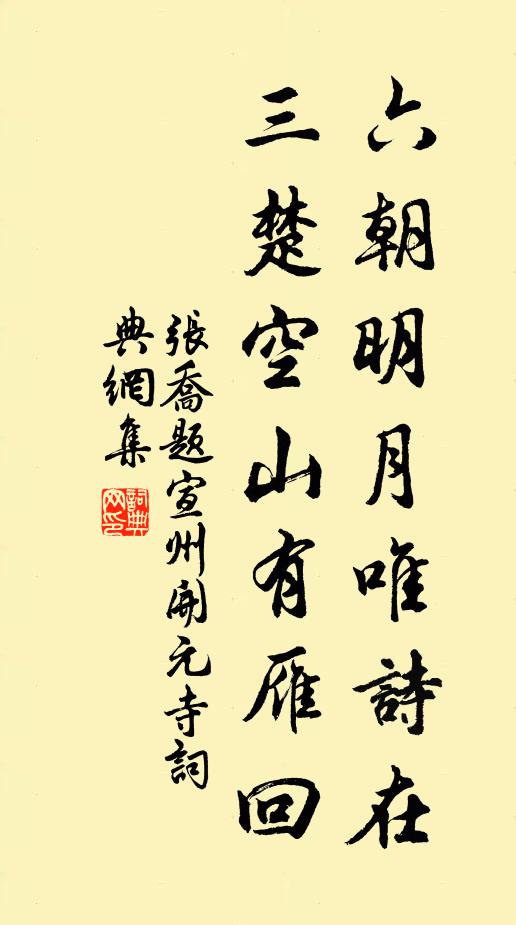 六朝明月唯詩在
三楚空山有雁回
張喬題宣州開元寺詞
典網集
詞典网印